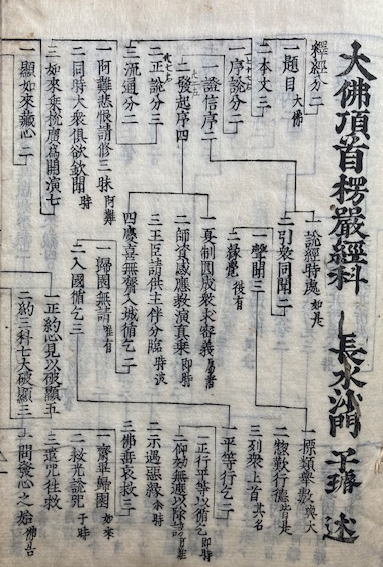 大佛頂首楞嚴經科 長水沙門 子璿 述
釋經分二
一題目 大佛
二本文三
一序說分二
一證信序二
一說經時處 如是
二引衆同聞二
一聲聞三
一標類舉數 與大
二惣歎行德 皆是
三列衆上首 其名
二緣覺 復有
二發起序四
一夏制圓成衆求密義
二師資感應敷演真乗 即時
三王臣請供主伴分臨 時波
四慶喜無齋入城循乞二
一歸園無請 唯有
二入國循乞三
一平等行乞二
一正行平等以循乞 即時
二仰効無遮以除
二示遇惡緣 尒時
三佛垂哀救三
一齋畢歸園 如來
二放光說咒 于時
三遣咒往救
二正說分三
一阿難悲恨請修三昧 阿難
二同時大衆俱欲欽聞 時
三如來乗機廣爲開演七
一顯如來藏心二
一正約心見以破顯五
一問發心之始 佛告
二約三科七大破顯三
三流通分二